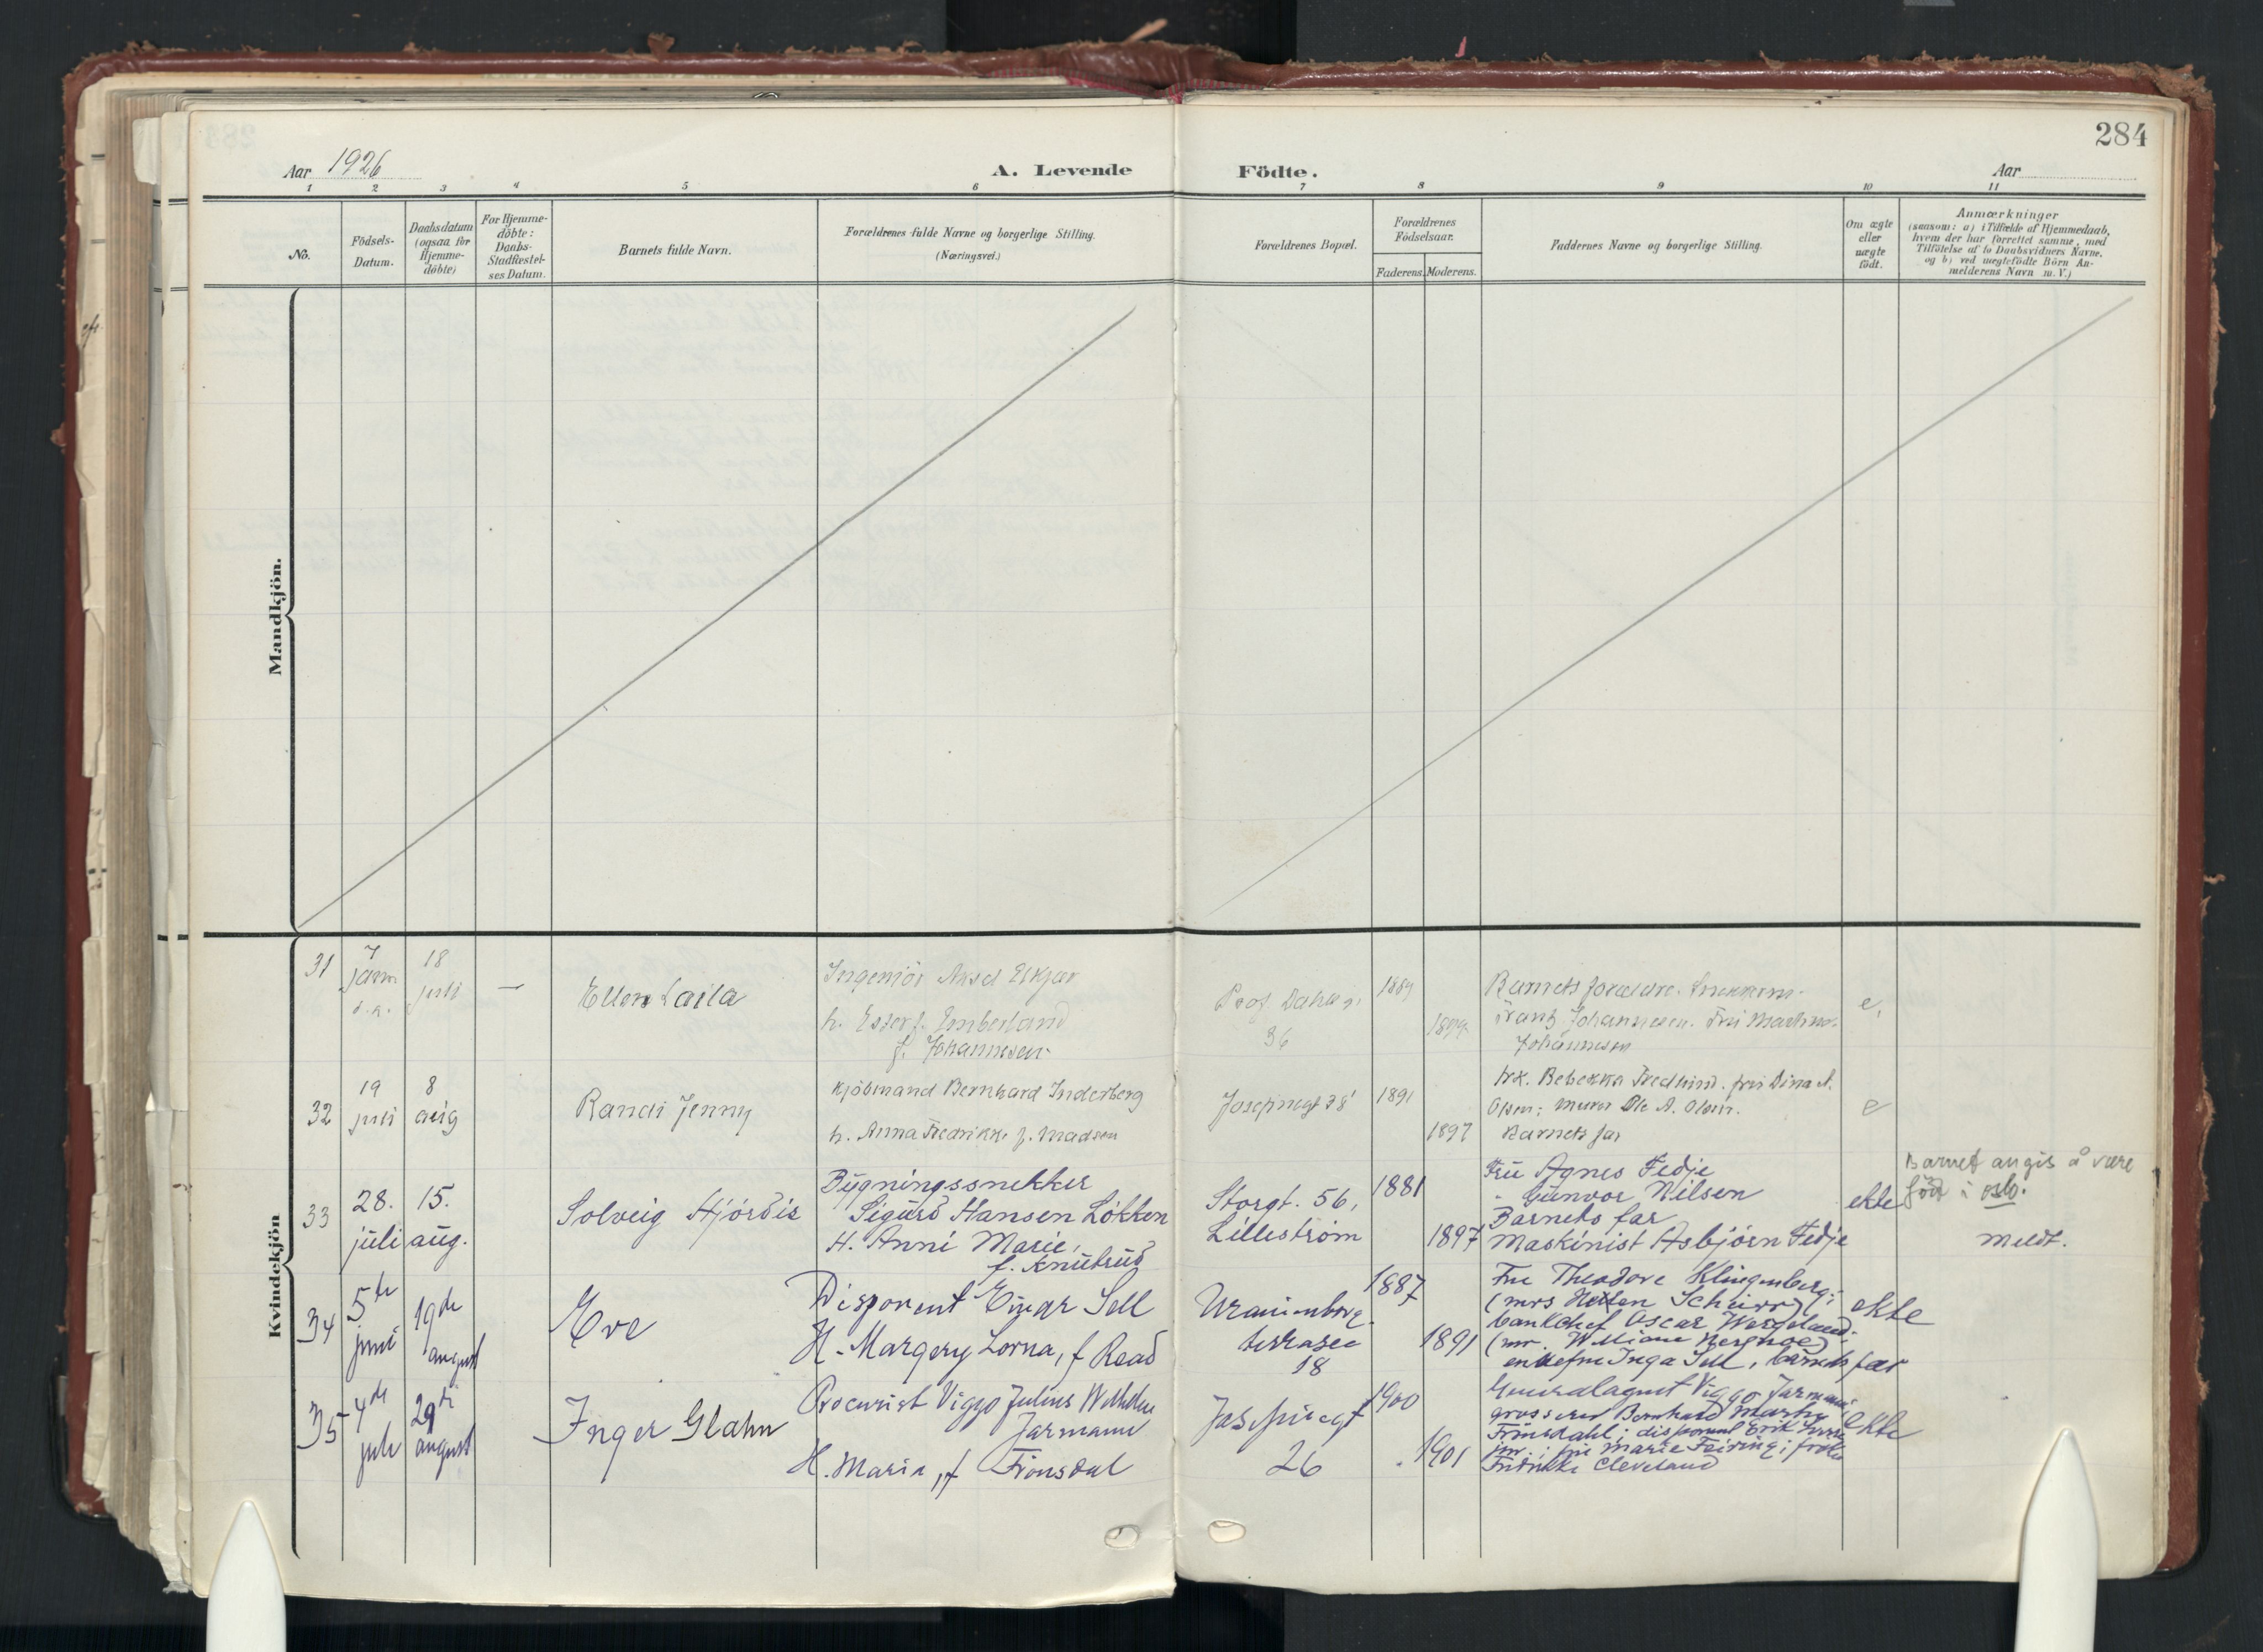 284
Aar 1926
A. Levende
Födte.
Aar
1 2 3 4 5 6 7 8 9 10 11
No.
Födsels-
Datum.
Daabsdatum
(ogsaa for
Hjemme-
döbte)
For Hjemme-
döbte:
Daabs-
Stadfæstel-
ses Datum.
Barnets fulde Navn.
Forældrenes fulde Navne og borgerlige Stilling.
(Næringsvei.)
Forældrenes Bopæl.
Forældrenes
Födselsaar.
Faderens. Moderens.
Faddernes Navne og borgerlige Stilling.
Om ægte
eller
uægte
födt.
Anmærkninger
(saasom: a) i Tilfælde af Hjemmedaab,
hvem der har forrettet samme, med
Tilföielse af to Daabsvidners Navne,
og b) ved uægtefödte Börn An-
melderens Navn m. V.)
Mandkjön.
Kvindekjön
31
7
jann
d.a.
18
juli
—
Ellen Laila
Ingeniör Aksel
h. Ester f. Emberland
f. Johannesen
Prof. Dahls
36
1889
Barnets forældre.
Frantz Johannesen. Fru
Johannesen
e.
32
19
juli
8
aug
Randi Jenny
Kjöbmand Bernhard Inderberg
h. Anna Fredrikke f. Madsen
Josefinegt 38
1891
1897
frk. Rebekka Fredlund. fru Dina A.
Olsen; murer Ole A. Olsen.
Barnets far
e
33
28.
juli
15.
aug.
Solveig Hjördis
Bygningssnekker
Sigurd Hansen Lökken
H. Anni Marie,
f. Knutsrud
Storgt. 56,
Lilleström
1881
1897
Fru Agnes Fedje
" Gunvor Nilsen
Barnets far
Maskinist Asbjörn Fedje
ekte
Barnet angis å være
född i Oslo.
meldt.
34
5te
juni
19de
august
Eve
Disponent Einar Sell
H. Margery Lorna, f Read
Uranienborg
terrasse
18
1887
1891
Fru Theodore Klingenberg;
(mrs
bankchef Oscar
(mr.
enkefru Inga Sell, barnets far
ekte
35
4de
juli
29de
august
Inger Glahn
Procurist Viggo Julius Wilhelm
Jarmann
H. Maria, f Frönsdal
Josefinegt
26
1900
1901
Generalagent Viggo Jarmann;
grosserer Bernhard
Frönsdahl; disponent Erik
jnr.; fru Marie Feiring; frøken
Fredrikke Cleveland
ekte